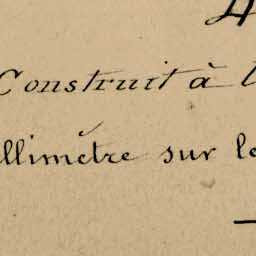 Construit à l
llimètre sur le